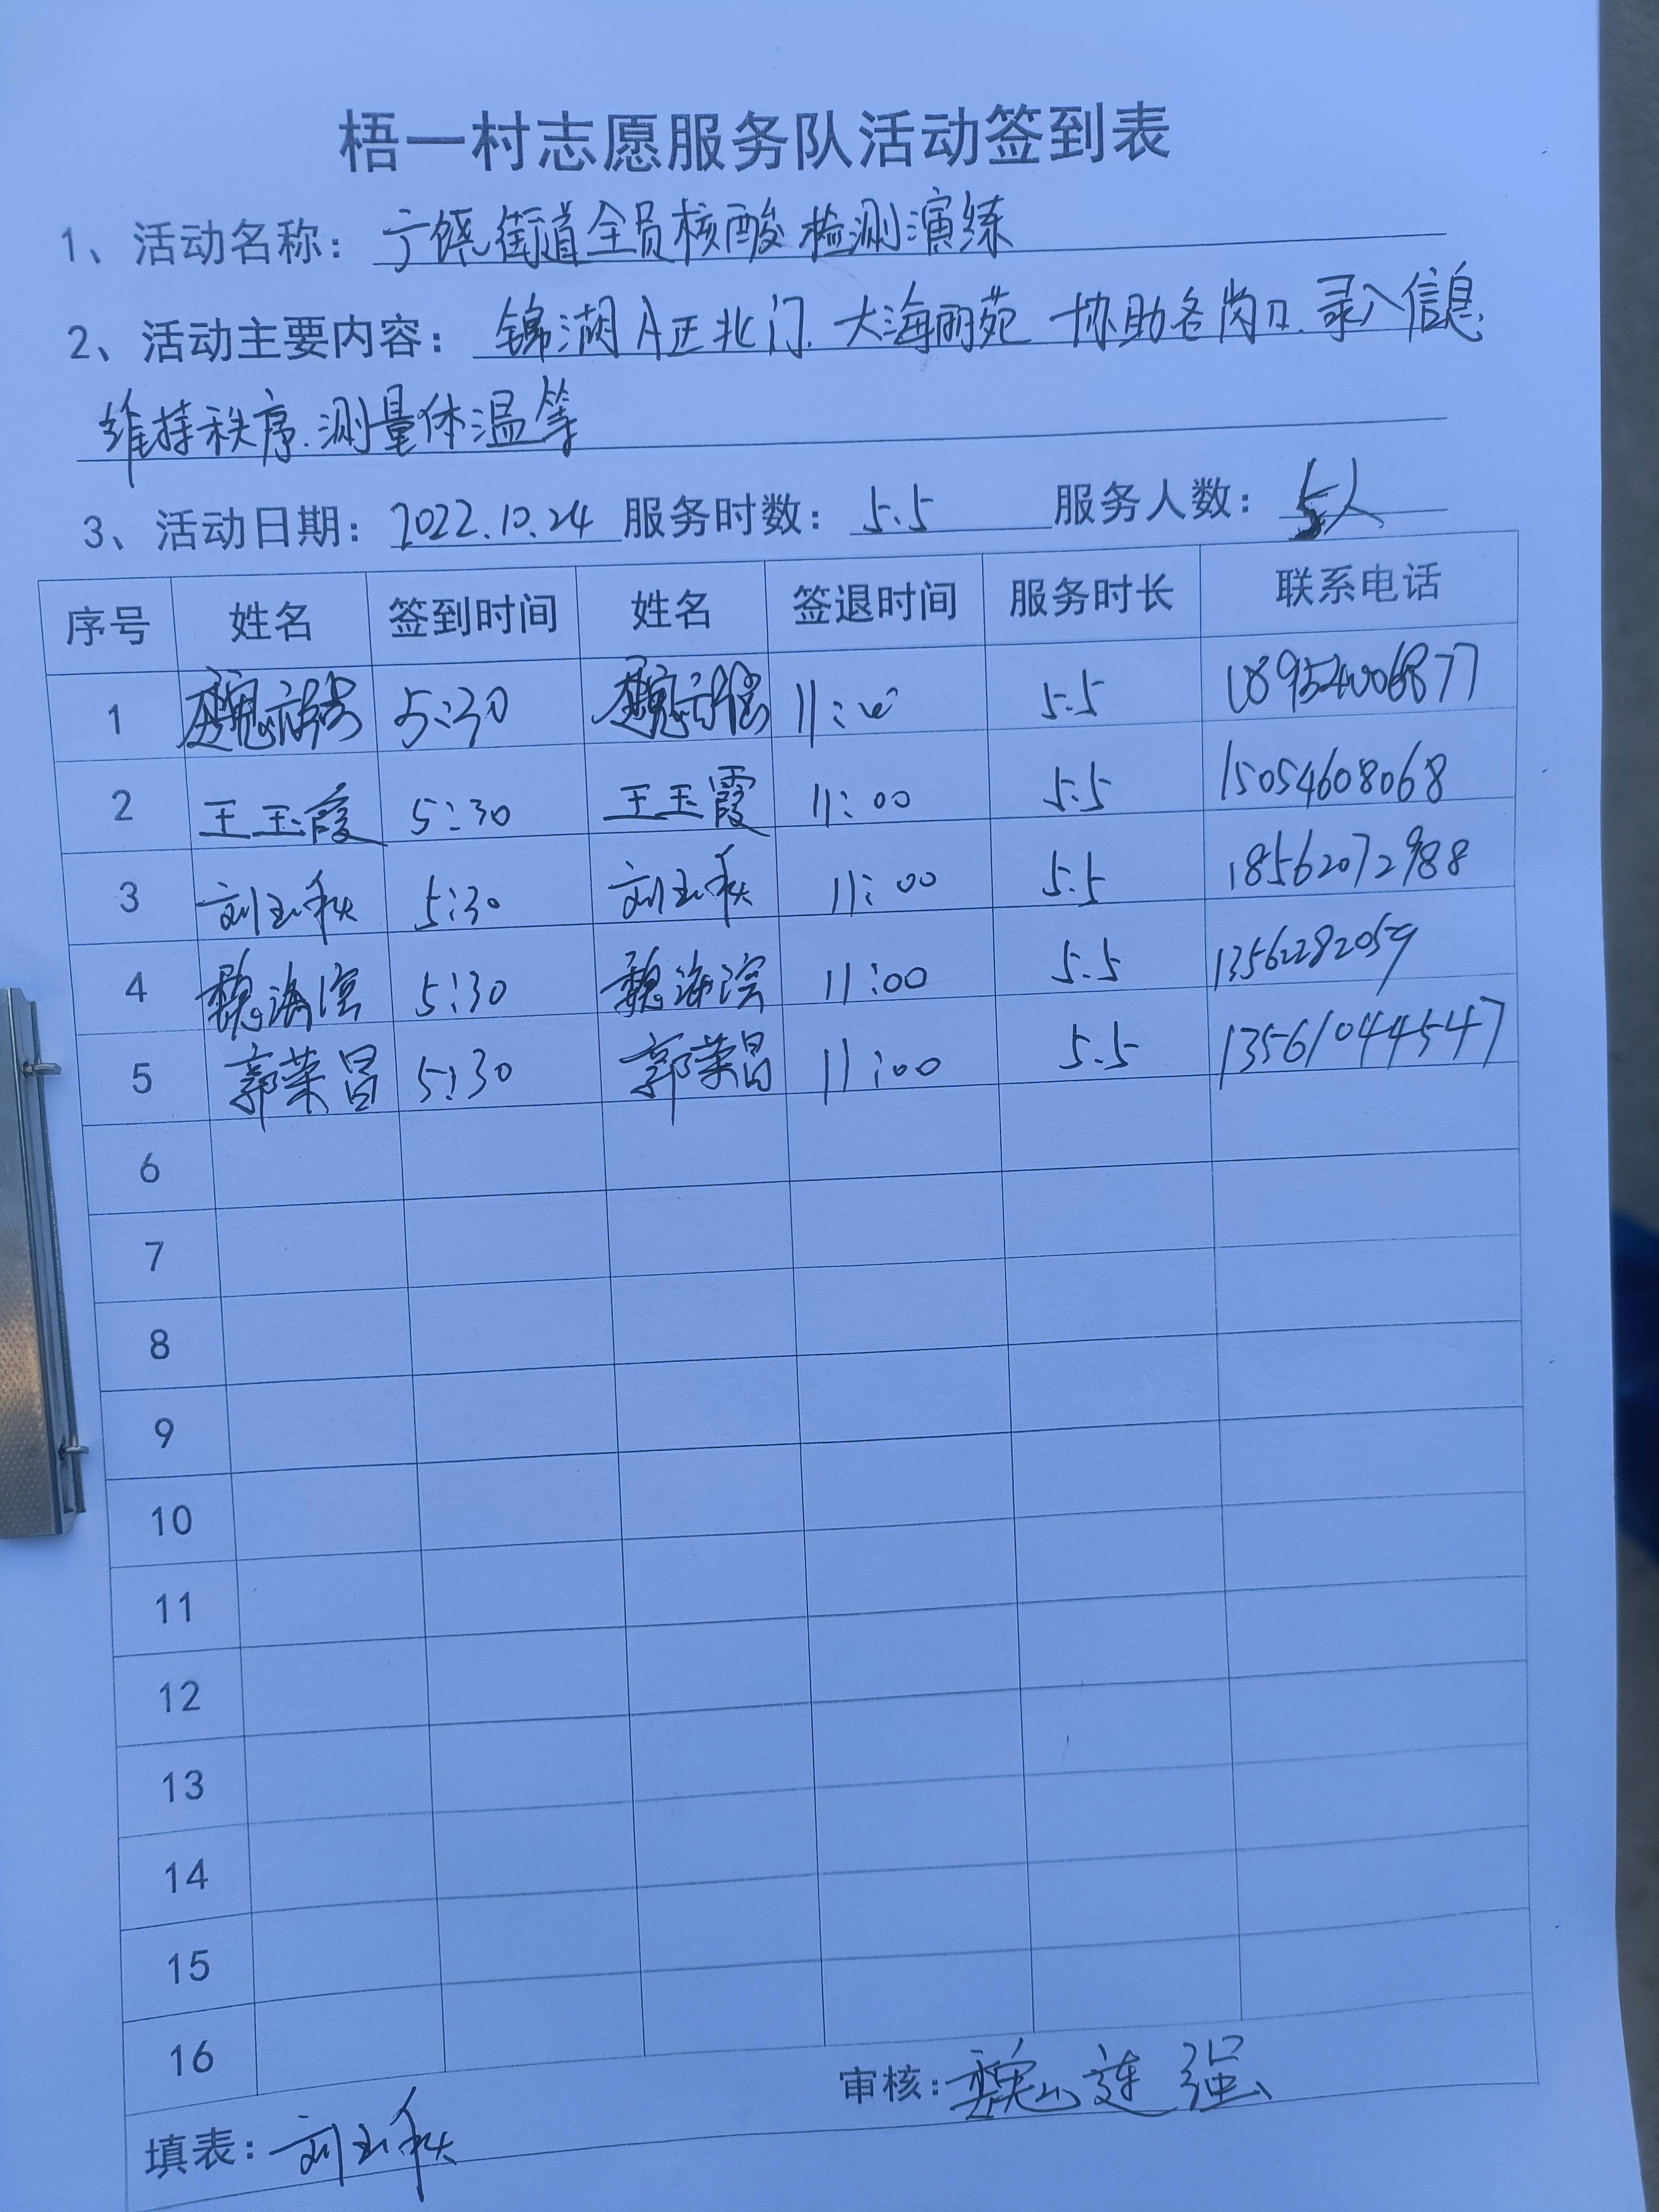 梧一村志愿服务队活动签到表
1、活动名称: 广饶街道全员核酸检测演练
2、活动主要内容: 锦湖A正北门.大海丽苑 协助各岗口.录入信息
维持秩序.测量体温等
3、活动日期: 2022.10.24 服务时数: 5.5 服务人数: 5人
序号 姓名 签到时间 姓名 签退时间 服务时长 联系电话
1 5:30 11:00 5.5 18954006877
2 王玉霞 5:30 王玉霞 11:00 5.5 15054608068
3 刘玉秋 5:30 刘玉秋 11:00 5.5 18562072988
4 魏海滨 5:30 魏海滨 11:00 5.5 1356282059
5 郭荣昌 5:30 郭荣昌 11:00 5.5 13561044547
6
7
8
9
10
11
12
13
14
15
16
填表: 刘玉秋 审核: 魏连强